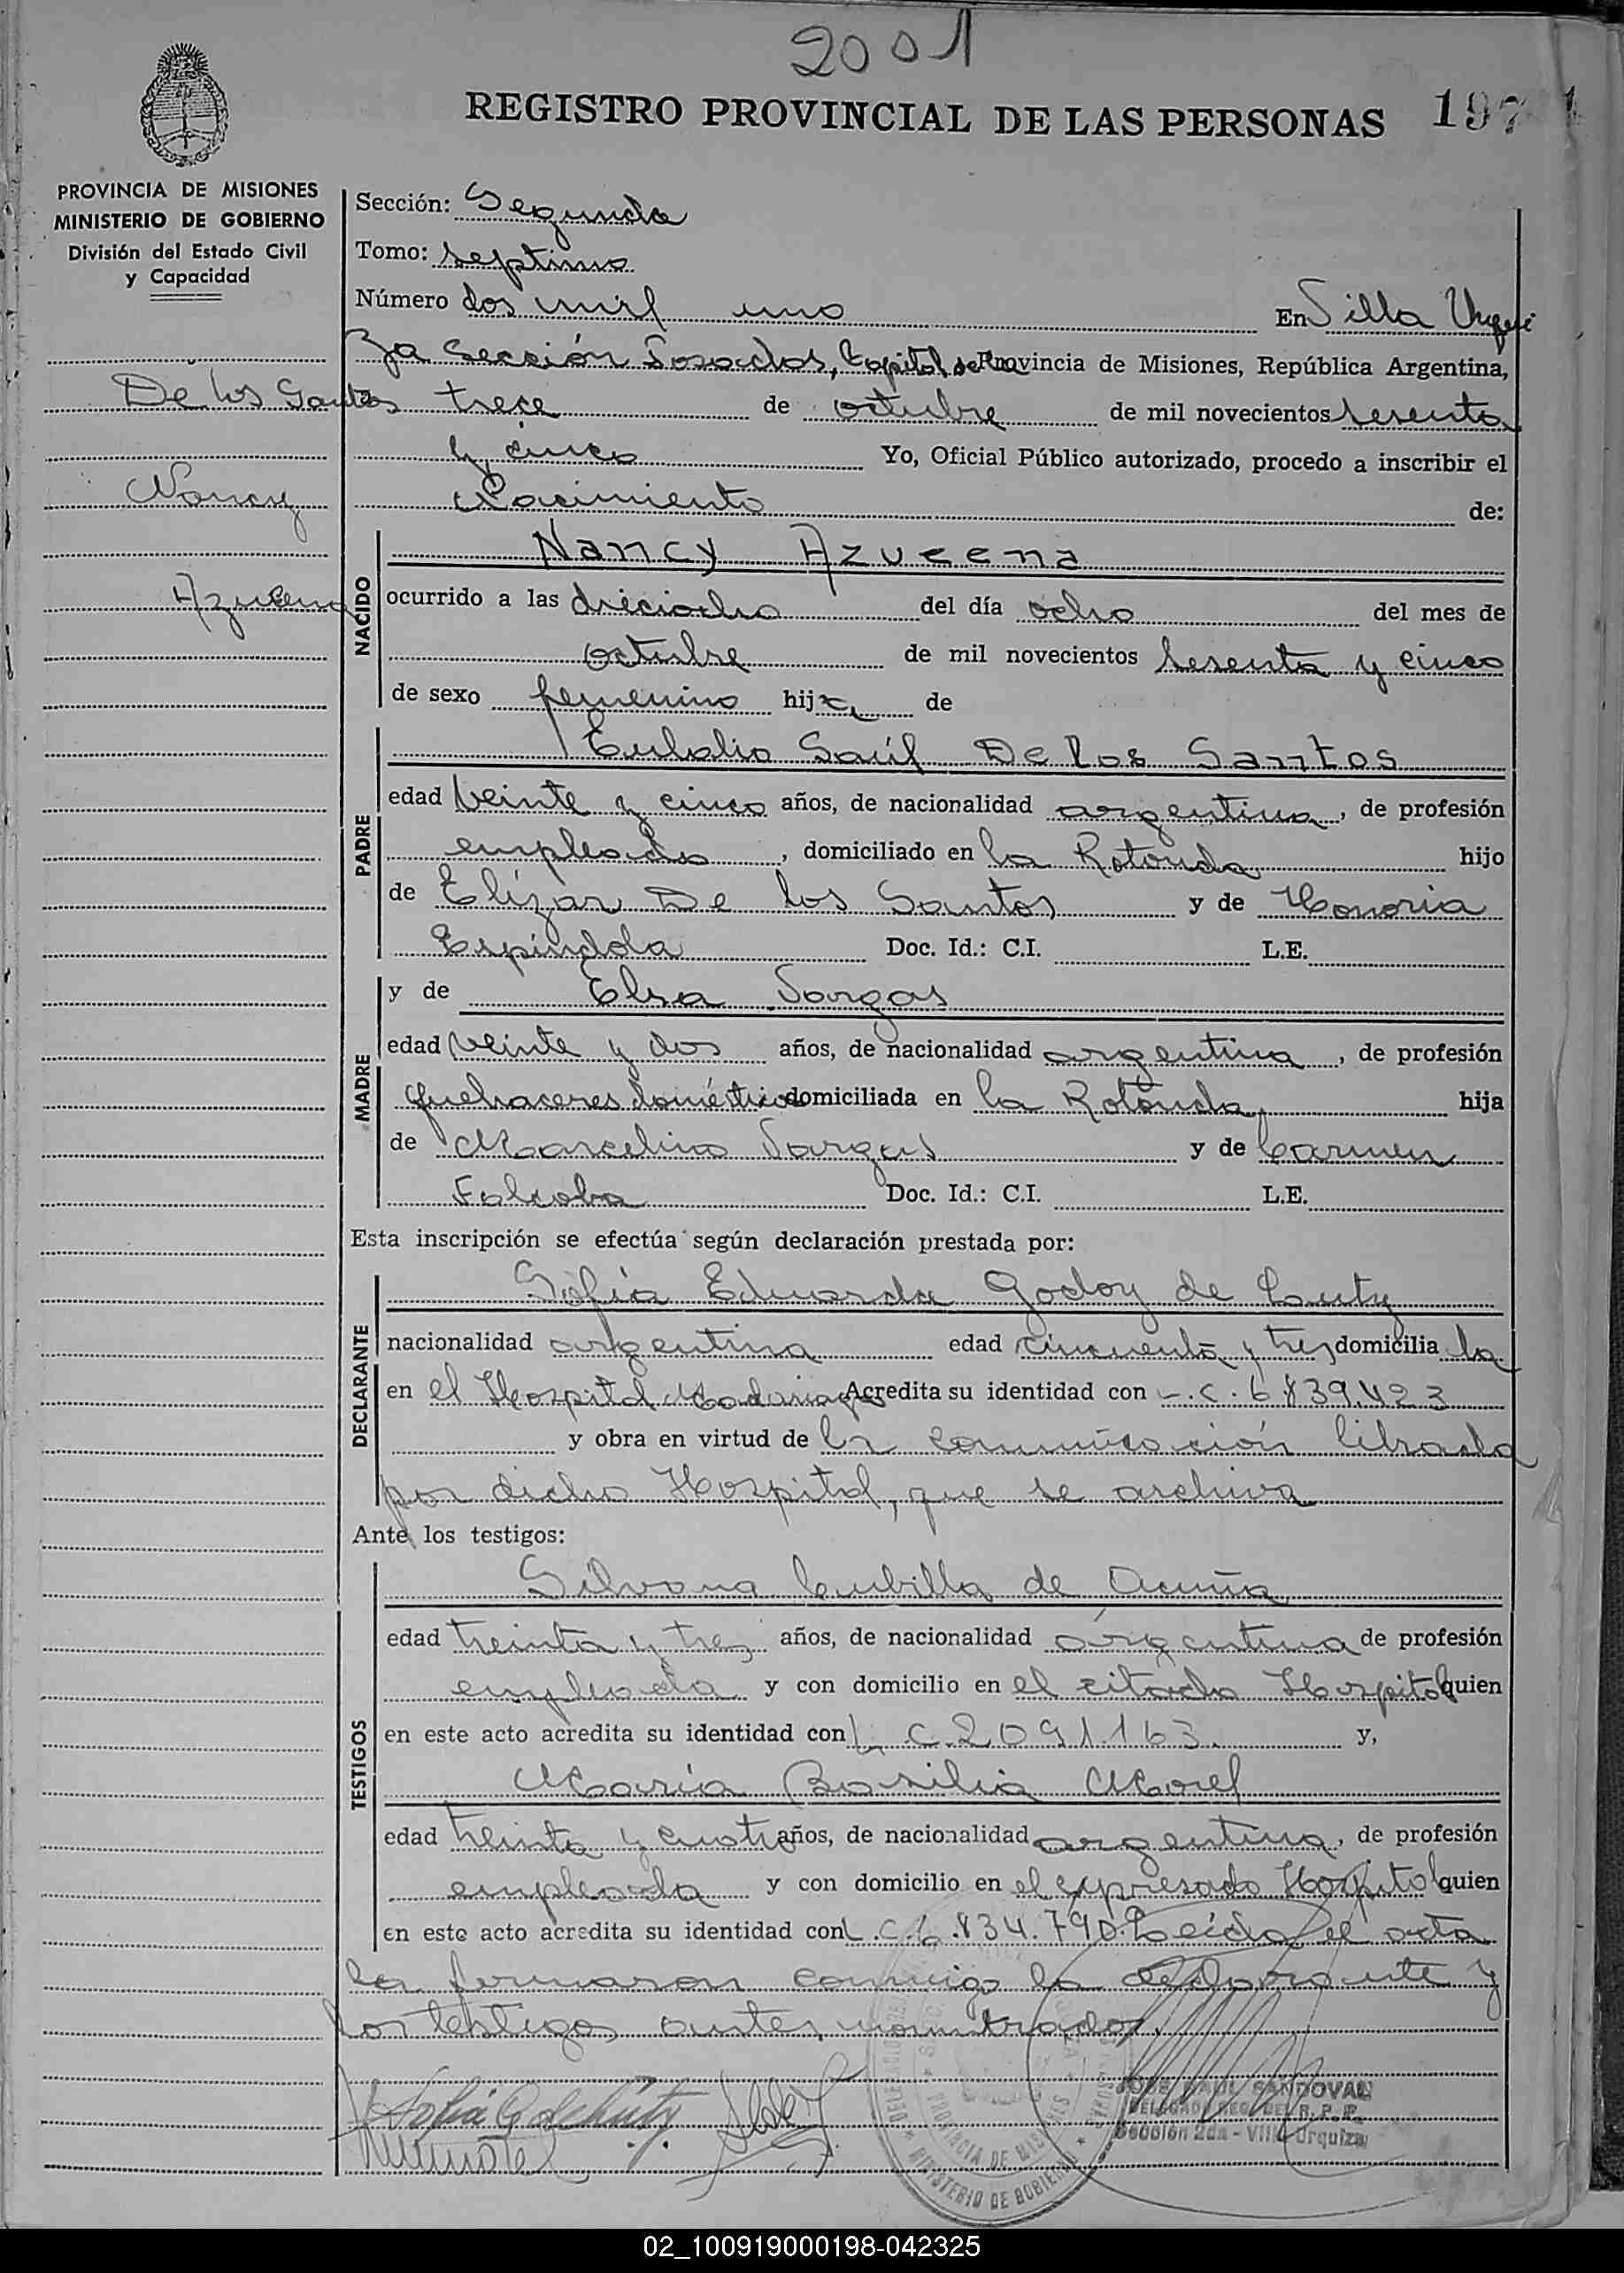 2001
REGISTRO PROVINCIAL DE LAS PERSONAS 197
PROVINCIA DE MISIONES
MINISTERIO DE GOBIERNO
División del Estado Civil
y Capacidad
De los Santos
Nancy
Azucena
Sección: Segunda
Tomo: septimo
Número dos mil uno En Villa Urqui
za Sección Posadas, Capital de la Provincia de Misiones, República Argentina,
trece de octubre de mil novecientos sesenta
y cinco Yo, Oficial Público autorizado, procedo a inscribir el
Nacimiento de:
NACIDO
Nancy Azucena
ocurrido a las dieciocho del día ocho del mes de
octubre de mil novecientos sesenta y cinco
de sexo femenino hija de
PADRE
Eulalio Saúl De los Santos
edad veinte y cinco años, de nacionalidad argentina, de profesión
empleado, domiciliado en la Rotonda hijo
de Elízar De los Santos y de Honoria
Espíndola Doc. Id.: C.I. L.E.
MADRE
y de Elsa Vargas
edad veinte y dos años, de nacionalidad argentina, de profesión
quehaceres domésticos domiciliada en la Rotonda, hija
de Marcelino Vargas y de Carmen
Doc. Id.: C.I. L.E.
Esta inscripción se efectúa según declaración prestada por:
DECLARANTE
Sofía Eduarda Godoy de
nacionalidad argentina edad cincuenta y tres domicilia da
en el Hospital Madariaga Acredita su identidad con L.C. 6.839.423
y obra en virtud de la comunicación librada
por dicho Hospital, que se archiva
Ante los testigos:
TESTIGOS
Silvana Cubilla de Acuña
edad treinta y tres años, de nacionalidad argentina de profesión
empleada y con domicilio en el citado Hospital quien
en este acto acredita su identidad con L.C. 2.091.163. y,
María Basilia Morel
edad treinta y cuatro años, de nacionalidad argentina, de profesión
empleada y con domicilio en el expresado Hospital quien
en este acto acredita su identidad con L.C. 6.834.790. Leída el acta
la firmaron conmigo la declarante y
los testigos antes nombrados.
JOSE RAUL SANDOVAL
DELEGADO REG. DEL R. P. P.
Sección 2da - Villa Urquiza
PROVINCIA DE MISIONES
MINISTERIO DE GOBIERNO
02_100919000198-042325